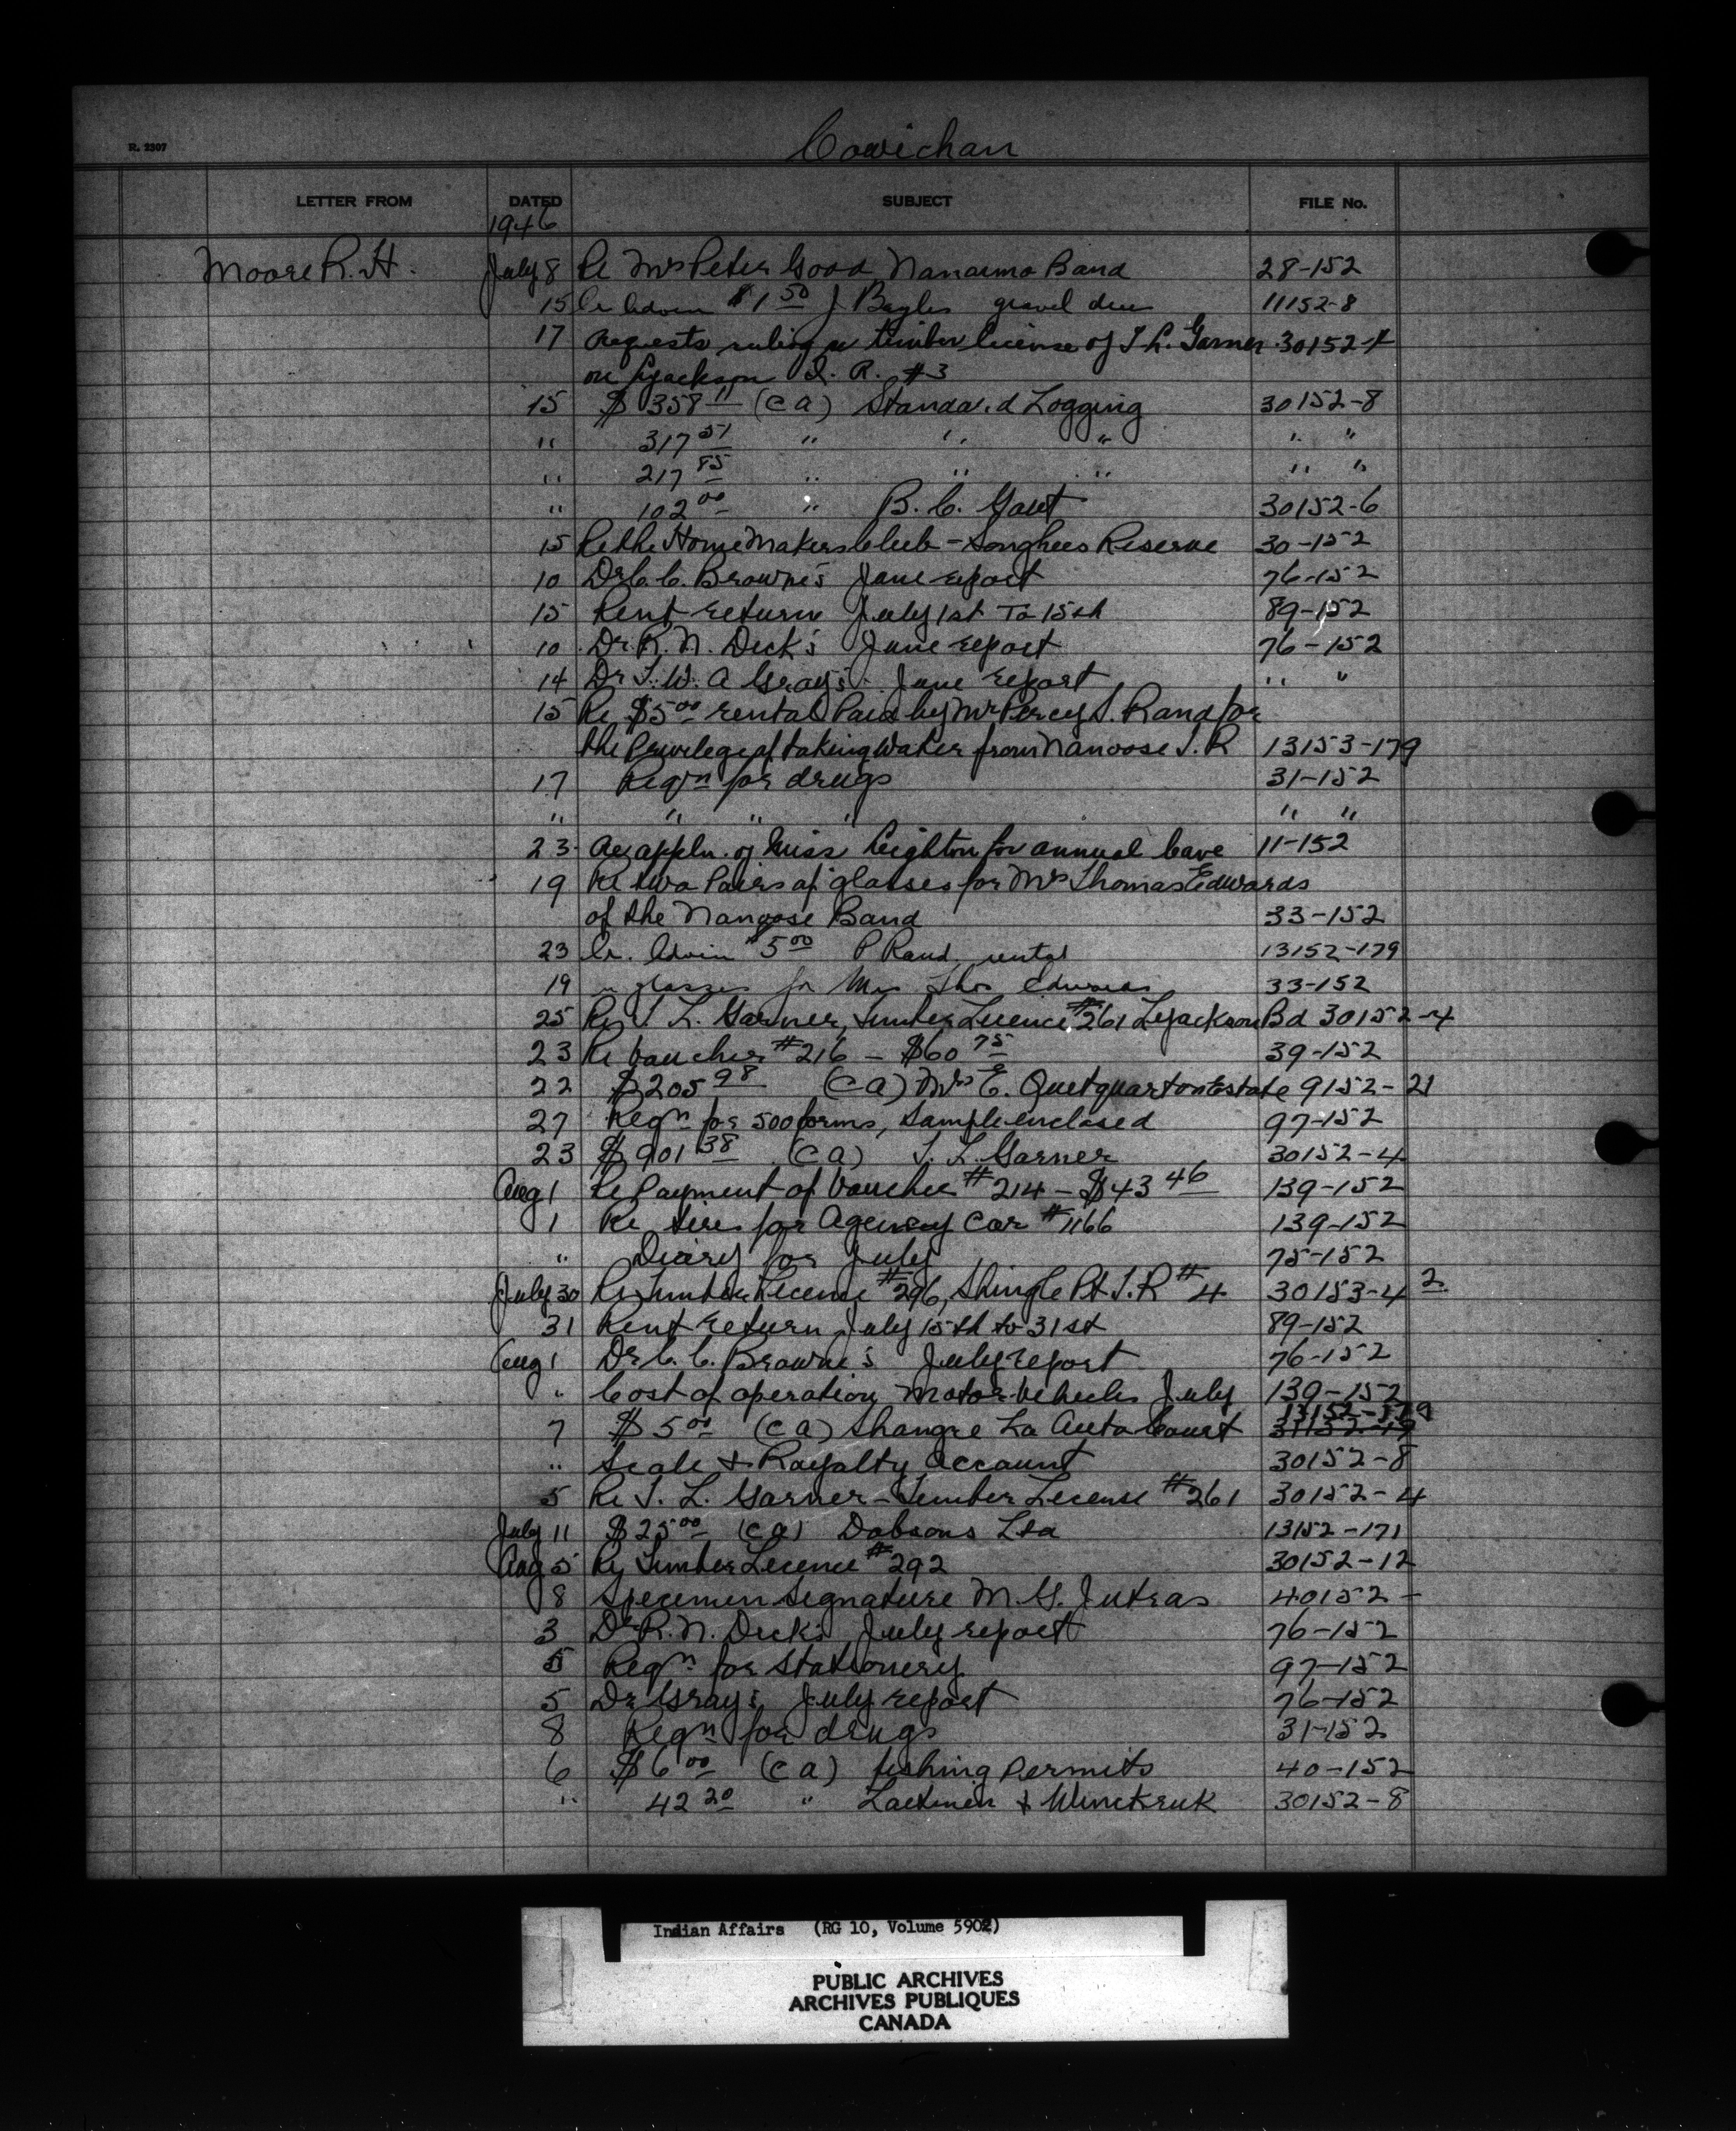 R. 2307
Cowichan
LETTER FROM DATED SUBJECT FILE No.
1946
Moore R. H. July 8 Re Mrs Peter Good Nanaimo Band 28-152
15 $1 50 J Bayles gravel dues 11152-8
17 Requests ruling re timber license of T. L. Garner 30152-4
on Lyackson I. R. #3
15 $358 11 (CA) Standard Logging 30152-8
" 317 51 " " " " "
" 217 85 " " " " "
" 102 00 " B. C. Govt 30152-6
15 Re the Home Makers Club - Songhees Reserve 30-152
10 Dr C. C. Browne's June report 76-152
15 Rent return July 1st To 15th 89-152
10 Dr. R. N. Dick's June report 76-152
14 Dr T. W. A Gray's June report " "
15 Re $5 00 rental Paid by Mr Percy S. Rand for
the Privilege of taking water from Nanoose I. R 13153-179
17 Reqn for drugs 31-152
" " " " " "
23 appln. of Miss Leighton for annual leave 11-152
19 Re two Pairs of glasses for Mrs Thomas Edwards
of the Nanoose Band 33-152
23 5 00 P Rand rental 13152-179
19 re glasses for Mrs Thos Edwards 33-152
25 Re T. L. Garner, Timber Licence #261 Lyackson Bd 30152-4
23 Re Voucher #216 - $60 75 39-152
22 $205 98 (CA) Mrs E. Estate 9152-21
27 Reqn for 500 forms, sample enclosed 97-152
23 $901 38 (CA) T. L. Garner 30152-4
Aug 1 Re Payment of Voucher #214 - $43 46 139-152
1 Re tires for Agency Car #1166 139-152
" Diary for July 75-152
July 30 Re Timber Licence #296, Shingle Pt I. R #4 30153-4 2
31 Rent return July 15th to 31st 89-152
Aug 1 Dr C. C. Browne's July report 76-152
" Cost of operation Motor Vehicles July 139-152
13152-179
7 $5 00 (CA) Shangre La Auto Court
" Scale & Royalty Account 30152-8
5 Re T. L. Garner - Timber License #261 30152-4
July 11 $25 00 (CA) Dobsons Ltd 13152-171
Aug 5 Re Timber Licence #292 30152-12
8 Specimen Signature M. G. Jutras 40152-
3 Dr R. N. Dick's July report 76-152
5 Reqn for Stationery 97-152
5 Dr Gray's July report 76-152
8 Reqn for drugs 31-152
6 $6 00 (CA) fishing Permits 40-152
" 42 20 " & 30152-8
Indian Affairs (RG 10, Volume 5902)
PUBLIC ARCHIVES
ARCHIVES PUBLIQUES
CANADA